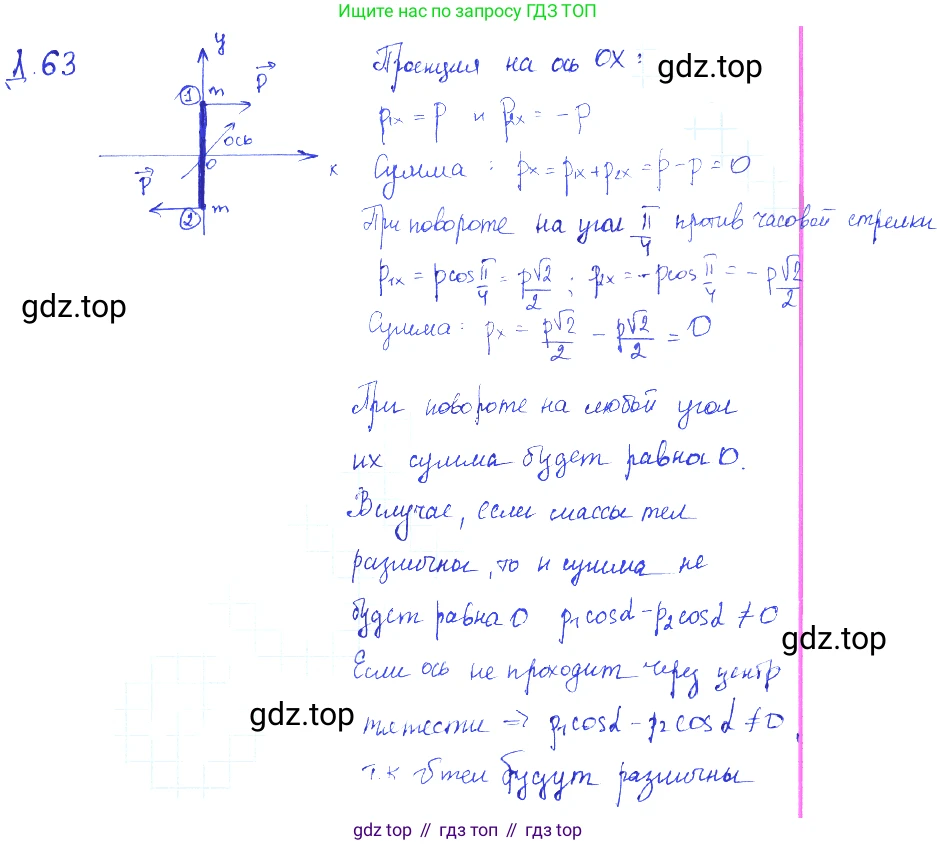 Ищите нас по запросу ГДЗ ТОП
Д.63
y
1
m
p
ось
o
x
p
2
m
Проекция на ось OX:
gdz.top
p₁ₓ = p и p₂ₓ = -p
Сумма: pₓ = p₁ₓ + p₂ₓ = p - p = 0
При повороте на угол π/4 против часовой стрелки
p₁ₓ = p cos π/4 = p√2/2; p₂ₓ = -p cos π/4 = -p√2/2
gdz.top
Сумма: pₓ = p√2/2 - p√2/2 = 0
При повороте на любой угол
их сумма будет равна 0.
В случае, если массы тел
различны, то и сумма не
будет равна 0 p₁cosα - p₂cosα ≠ 0
gdz.top
Если ось не проходит через центр
gdz.top
тяжести ⇒ p₁cosα - p₂cosα ≠ 0,
т.к тел будут различны
gdz top // гдз топ // gdz top